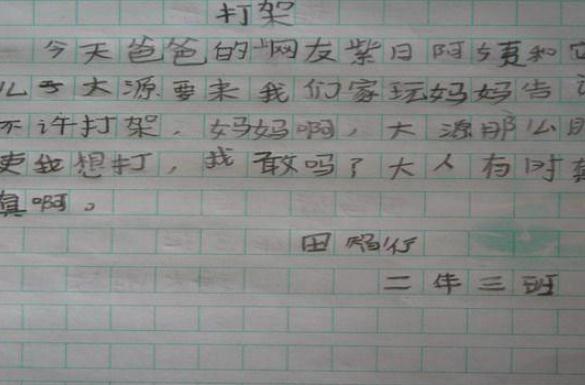 打架
今天爸爸的网友紫日阿姨和它
儿子大源要来我们家玩妈妈告
不许打架，妈妈啊，大源那么
使我想打，我敢吗？大人有时
真啊。
田 行
二年三班